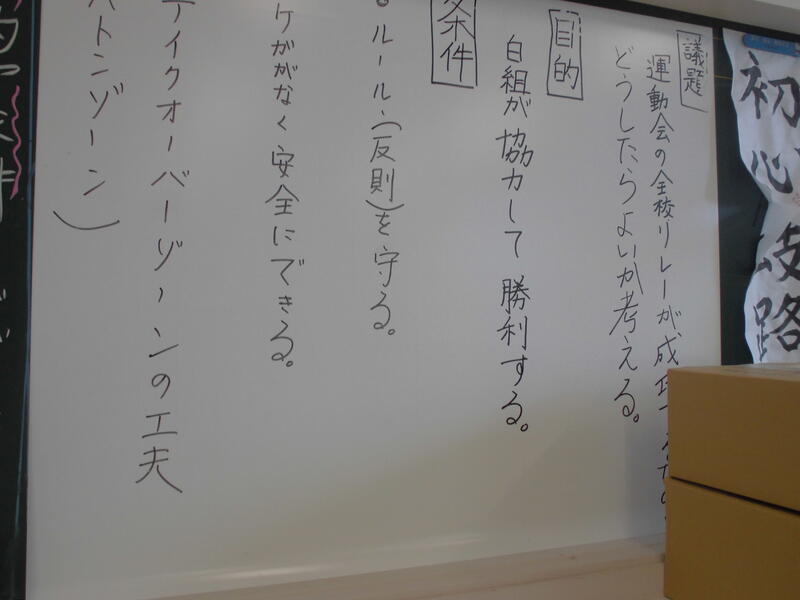 議題
運動会の全校リレーが成功するため
どうしたらよいか考える。
目的
白組が協力して勝利する。
条件
ルール(反則)を守る。
ケガがなく安全にできる。
テイクオーバーゾーンの工夫
バトンゾーン)
初心
路